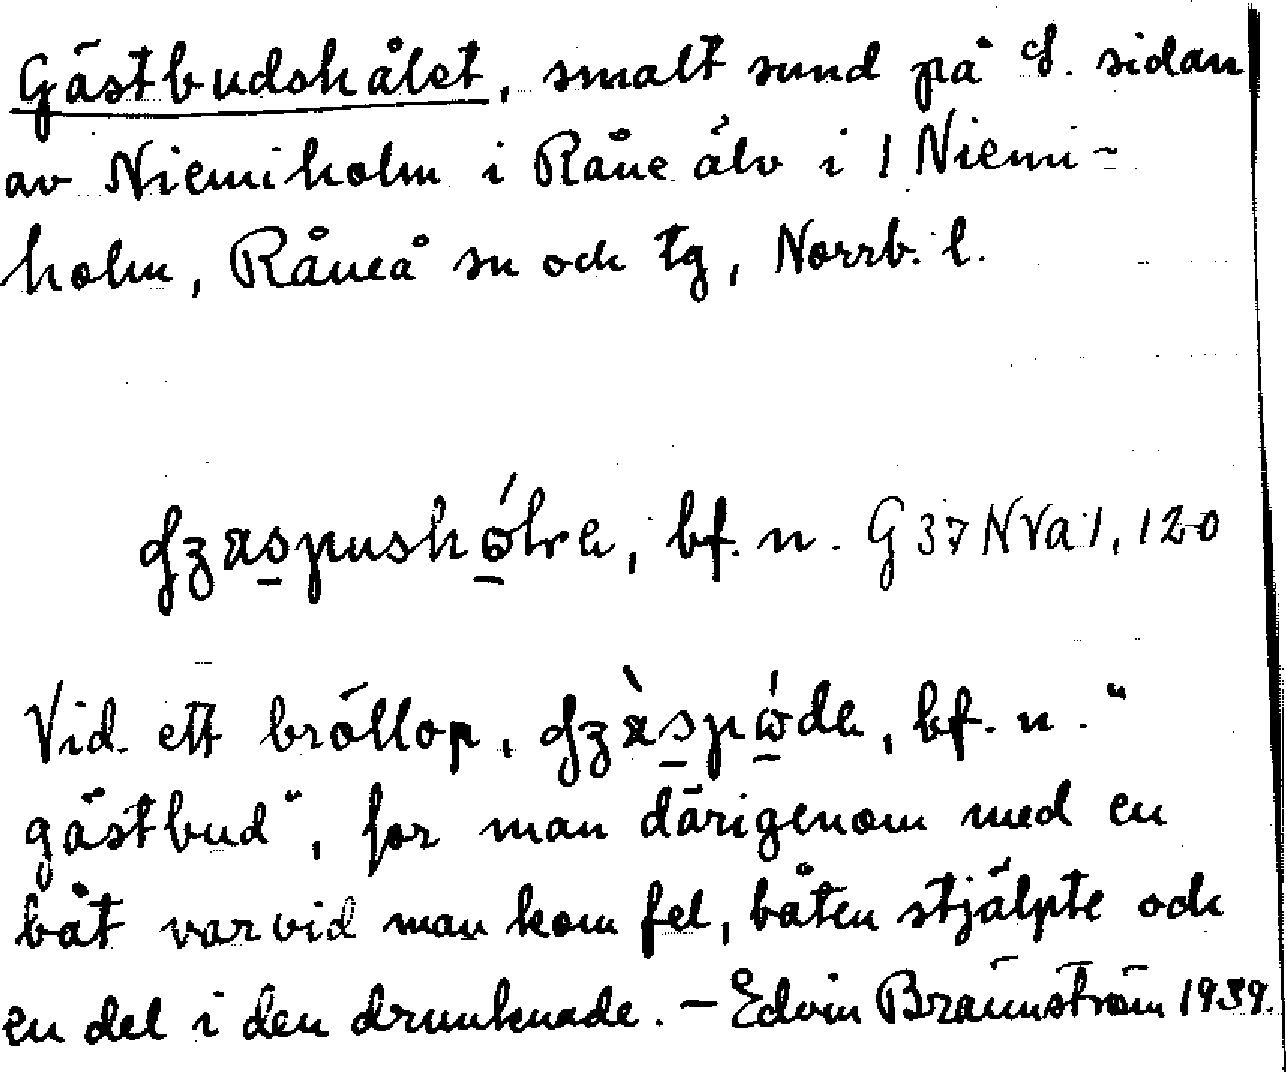 Gästbudshålet, smalt sund på S. sidan
av Niemiholm i Råne älv i 1 Niemi-
holm, Råneå sn och tg, Norrb. l.
bf. n. G 37 N Va 1, 120
Vid ett bröllop, bf. n. "
gästbud", for man därigenom med en
båt varvid man kom fel, båten stjälpte och
en del i den drunknade. – Edvin Brännström 1939.